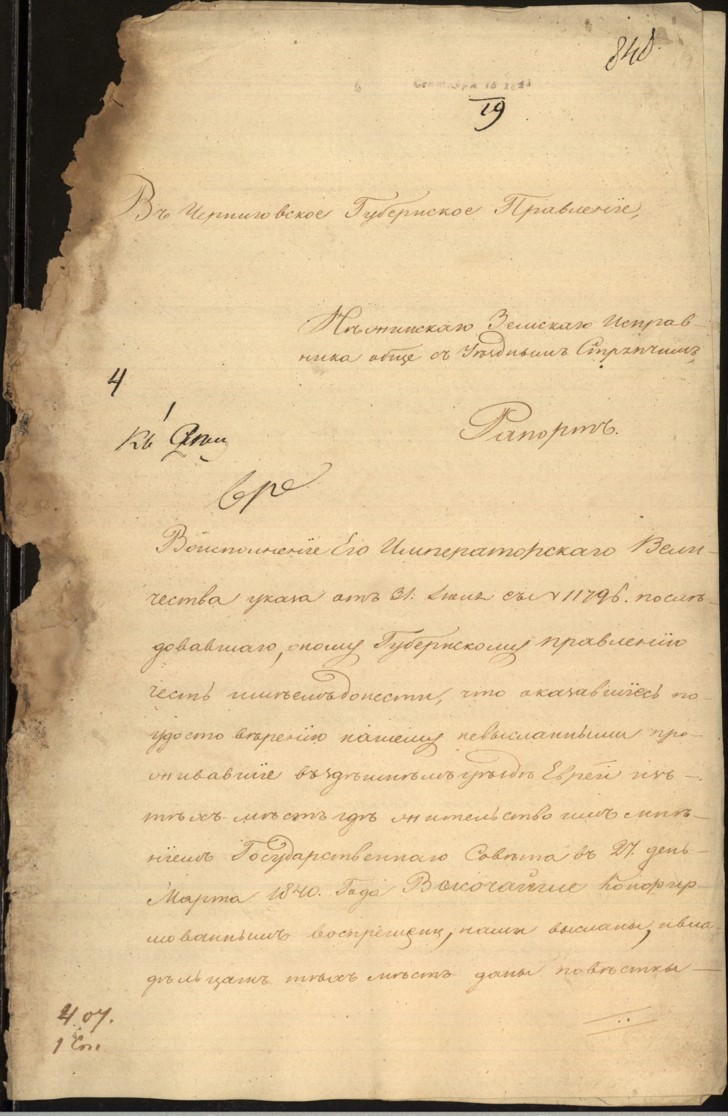 848
19
Въ Черниговское Губернское Правленіе,
Нѣжинскаго Земскаго Исправ-
ника обще съ Уѣзднымъ Стряпчимъ
4
Рапортъ.
Къ Дѣлу
Воисполненіе Его Императорскаго Вели-
чества указа отъ 31. Іюля съ № 11796. послѣ-
довавшаго, оному Губернскому правленію
честь имѣемъ донести, что оказавшіесь по
удостовѣренію нашему невысланными про-
живавшіе въ здѣшнемъ уѣздѣ Евреи изъ
тѣхъ мѣстъ гдѣ жительство имъ мнѣ-
ніемъ Государственнаго Совѣта въ 27. день
Марта 1840. Года Высочайше конфир-
мованнымъ воспрещен, нами высланы, и вла-
дѣльцамъ тѣхъ мѣстъ даны повѣстки
407.